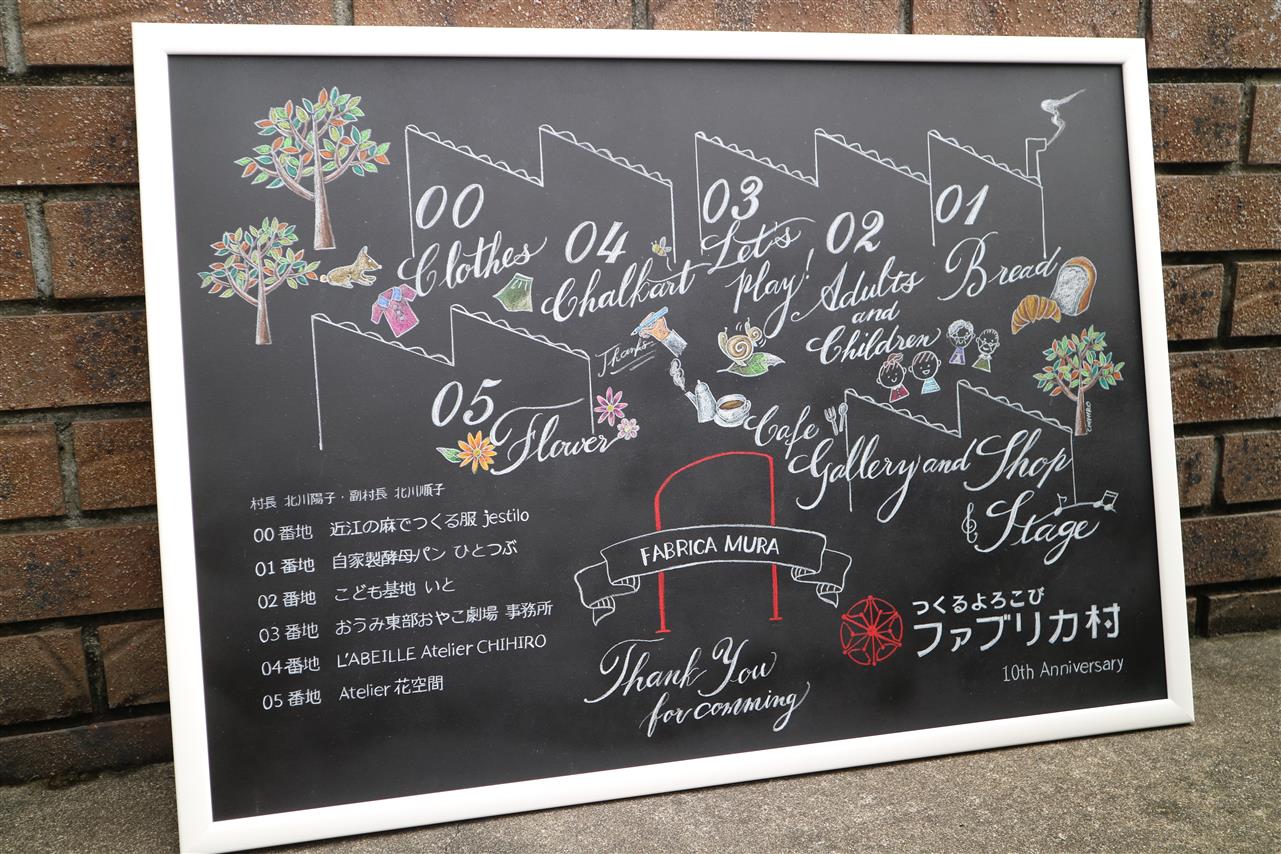 00
Clothes
04
Chalkart
03
Let's
play!
02
Adults
and
Children
01
Bread
Thanks
05
Flower
Cafe
Gallery and Shop
Stage
CHIHIRO
村長 北川陽子・副村長 北川順子
00番地 近江の麻でつくる服 jestilo
01番地 自家製酵母パン ひとつぶ
02番地 こども基地 いと
03番地 おうみ東部おやこ劇場 事務所
04番地 L'ABEILLE Atelier CHIHIRO
05番地 Atelier 花空間
FABRICA MURA
Thank You
for comming
つくるよろこび
ファブリカ村
10th Anniversary